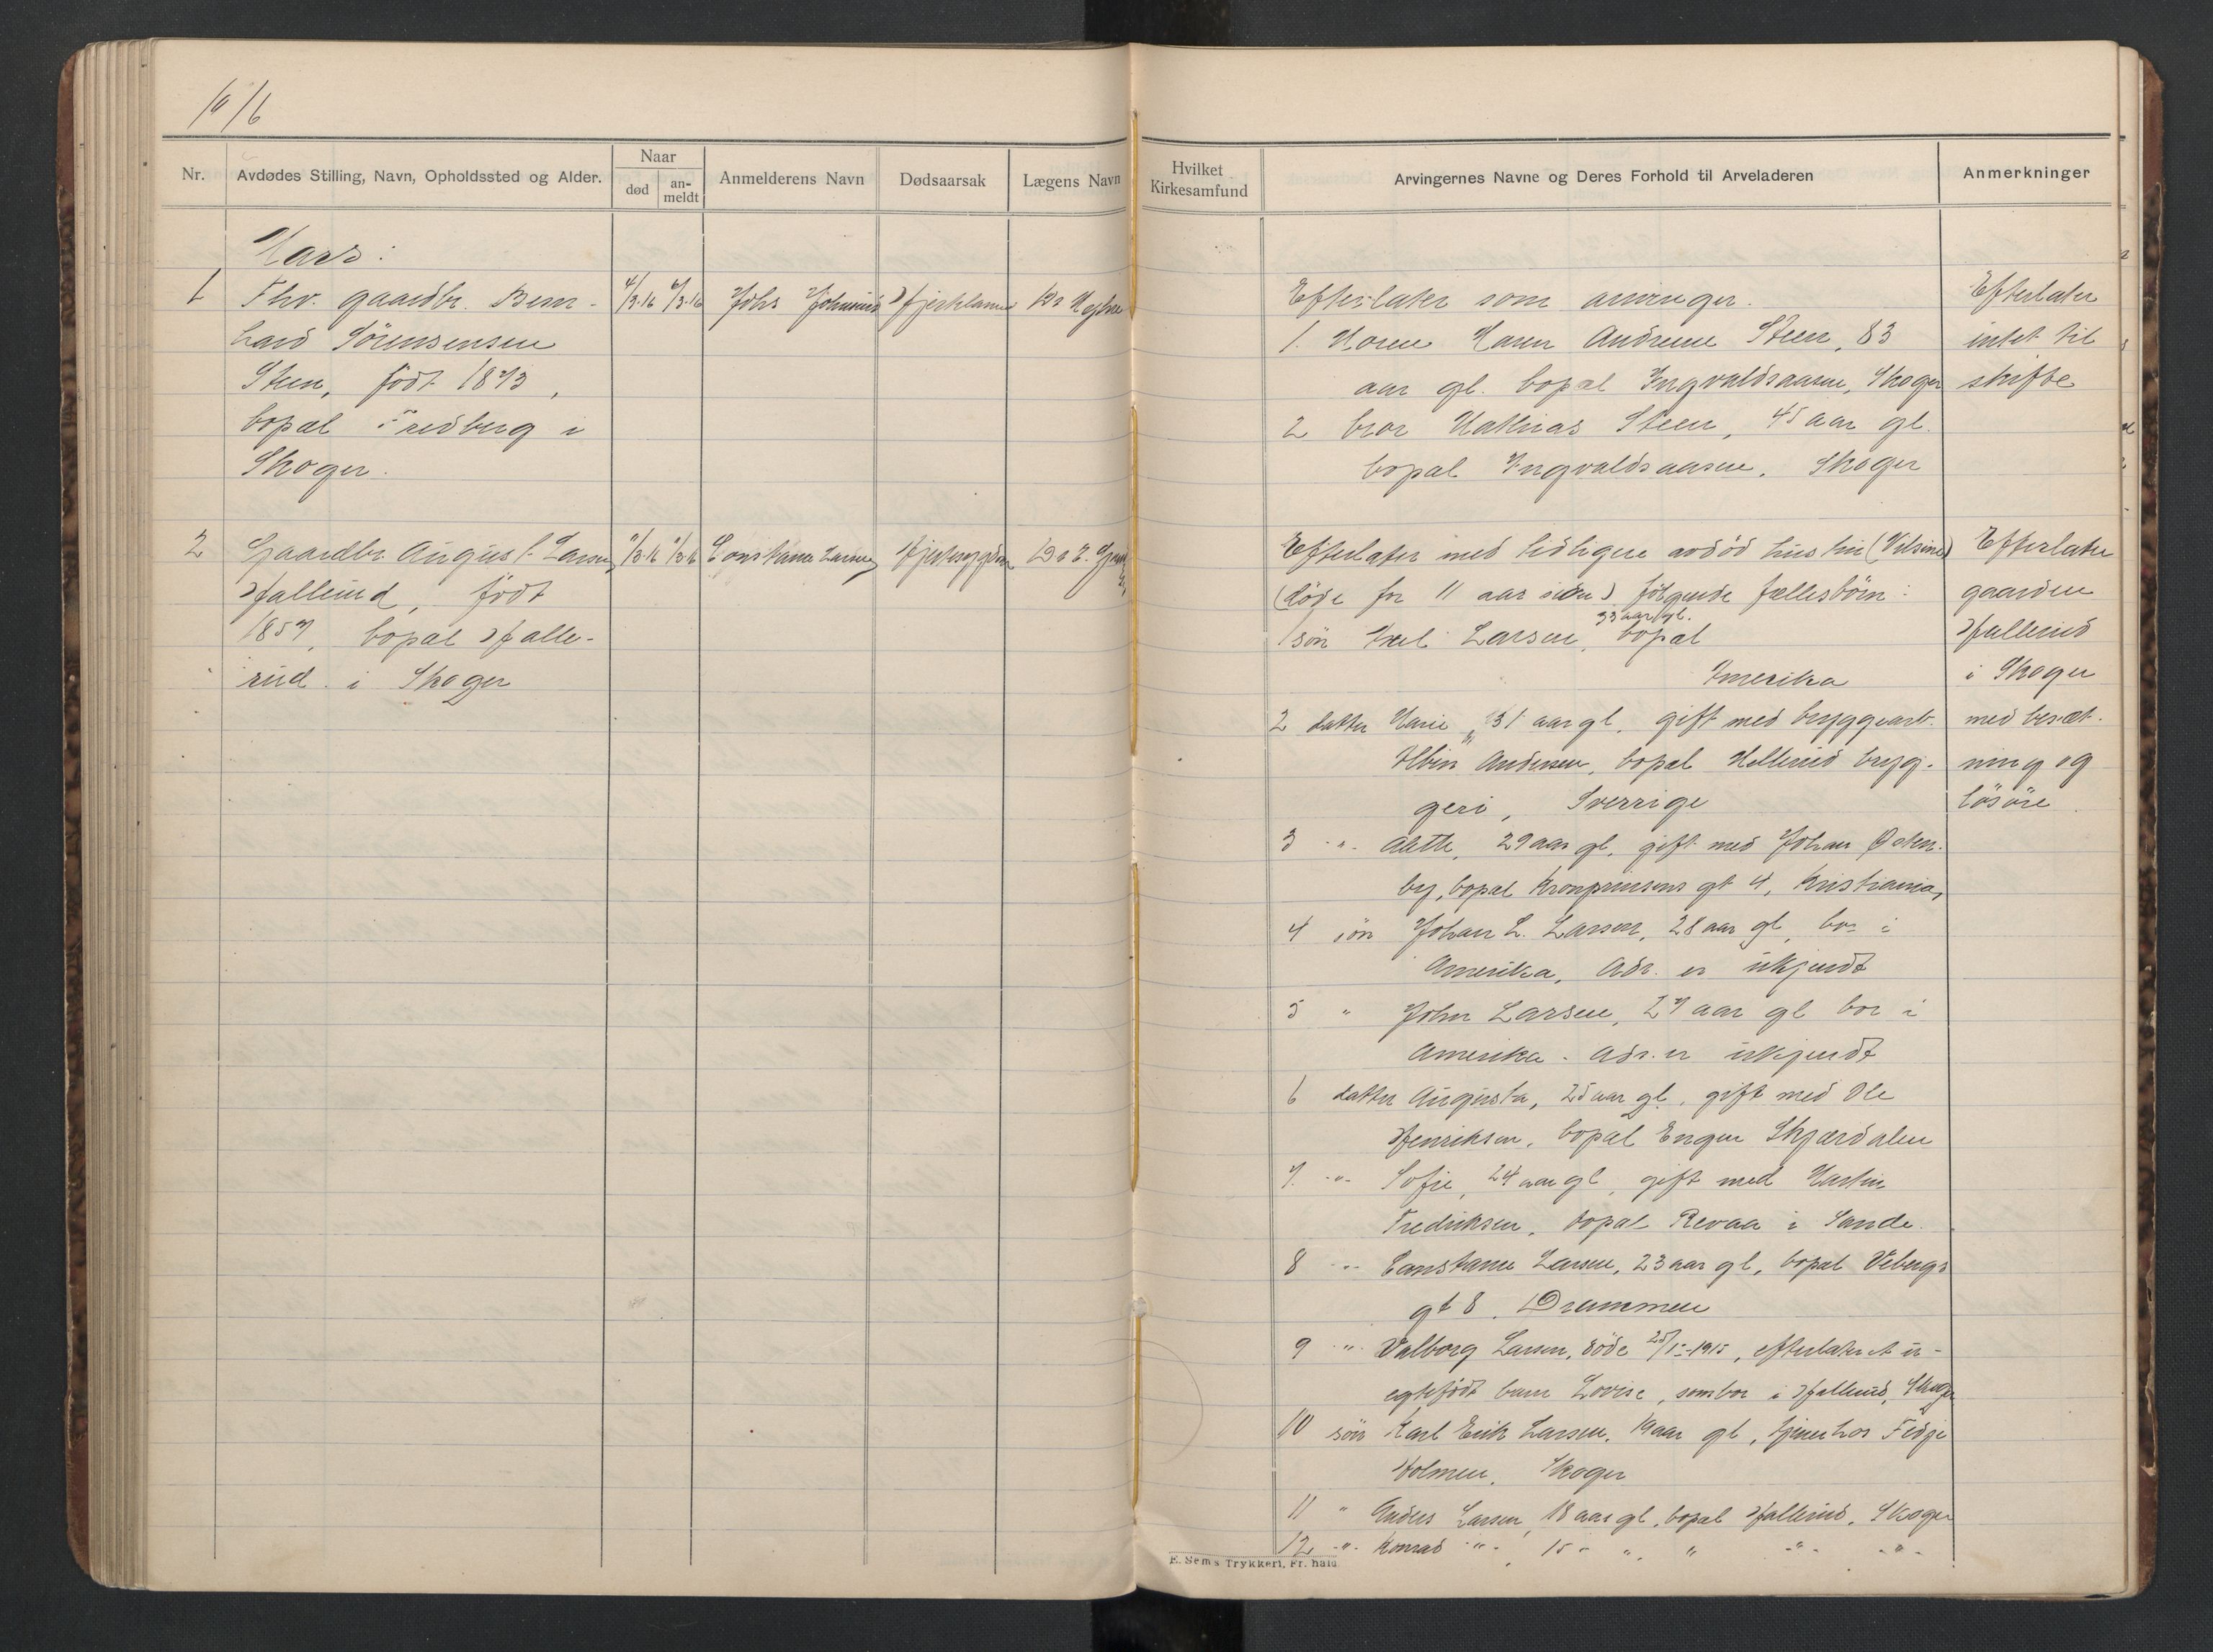 1916
Nr.
Avdødes Stilling, Navn, Opholdssted og Alder.
Naar
død
an-
meldt
Anmelderens Navn
Dødsaarsak
Lægens Navn
Hvilket
Kirkesamfund
Arvingernes Navne og Deres Forhold til Arveladeren
Anmerkninger
Mars:
1 Fhv. gaardbr. Bern-
hard Sörensensen
Steen, födt 1873,
bopæl Fredberg i
Skoger.
4/3.16 6/3.16 Johs Hjertelamme Dr
Efterlater som arvinger.
1. Moren Maren Andrine Steen, 83
aar gl. bopæl Ingvaldsaasen, Skoger
2 bror Mathias Steen, 45 aar gl.
bopæl Ingvaldsaasen, Skoger
Efterlater
intet til
skifte
2 Gaardbr. August Larsen
Hallerud, födt
1857, bopæl Halle-
rud i Skoger
/3.16 /3.16 Constance Larsen Hjertesygdom Dr E.
Efterlater med tidligere avdöd hustru
(döde for 11 aar siden) fölgende fællesbörn:
33 aar gl.
1 sön Axel Larsen, bopæl
Amerika
2 datter Marie, 31 aar gl. gift med bryggearb.
Albin Andersen, bopæl Hellerud bryg-
geri, Sverrige
3 -"- Alette, 29 aar gl, gift med Johan Østen-
by, bopæl Kronprinsens gt 4, Kristiania,
4 sön Johan L. Larsen, 28 aar gl, bor i
Amerika, Adr. er ukjendt
5 " John Larsen, 27 aar gl bor i
Amerika - Adr. er ukjendt
6 datter Augusta, 25 aar gl, gift med Ole
Henriksen, bopæl Enger Skjærdalen
7. -"- Sofie, 24 aar gl, gift med Martin
Fredriksen, bopæl Revaa i Sande.
8 -"- Constance Larsen, 23 aar gl, bopæl Vebergs
gt 8. Drammen
9 -"- Valborg Larsen, döde 1915, efterlater et u-
egtefödt barn Lovise, som bor i Hallerud, Skoger
10 sön Karl Erik Larsen, 19 aar gl, tjener hos
Holmen, Skoger
11 " Anders Larsen, 18 aar gl, bopæl Hallerud, Skoger
12 -"- Konrad -"-, 15 - ", " -"- -"-
Efterlater
gaarden
Hallerud
i Skoger
med besæt-
ning og
lösöre.
E. Sem's Trykkeri, Fr.hald